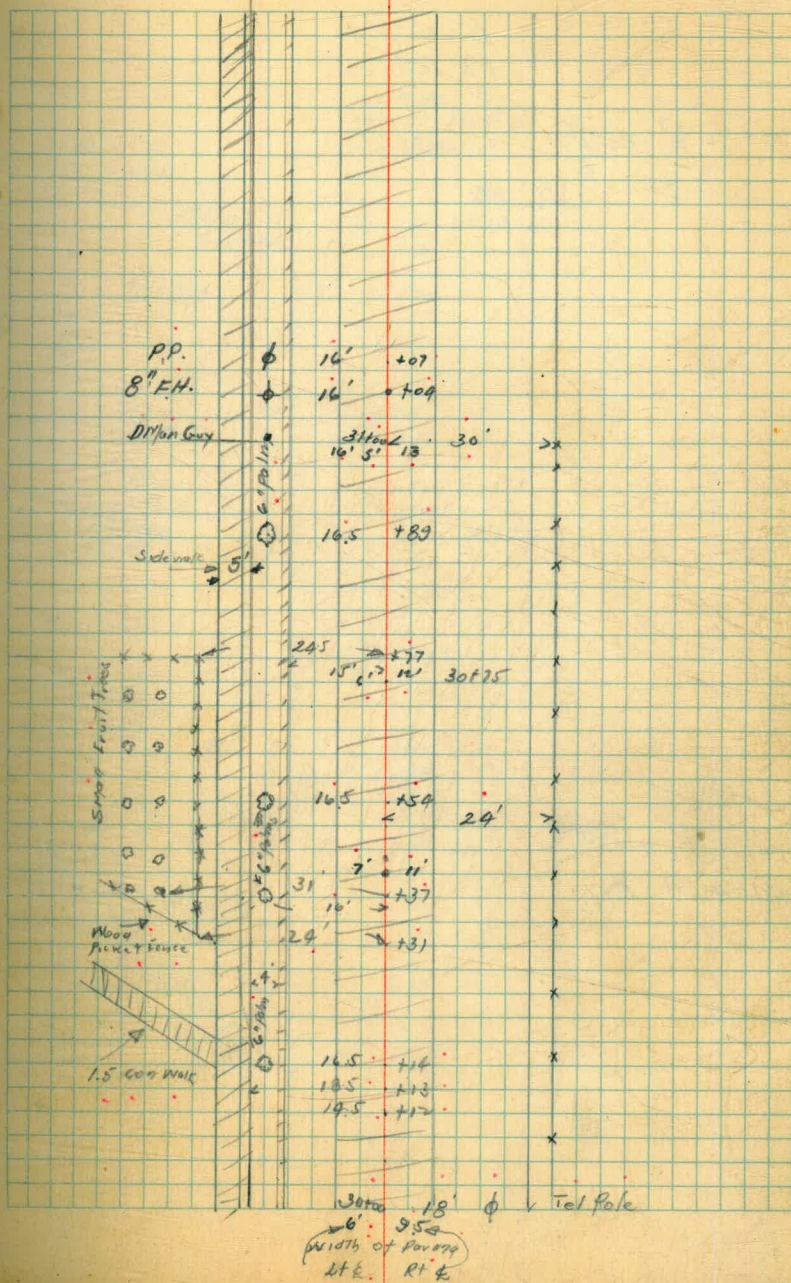 P.P. 16' +07
8" F.H. 16' +04
31+00 30'
16' 5' 13
6" Palm
16.5 +89
Sidewalk 5'
24.5 +77
15' 6' 12' 30+75
Small Fruit Trees
16.5 +54
24'
6" Palms
7' 11'
31' +37
16'
Wood
Picket Fence
24' +31
4
6" Palm
1.5 con Walk
16.5 +14
18.5 +13
19.5 +12
30+00 18' Tel Pole
6' 9.5
Width of Paving
Lt ℄ Rt ℄